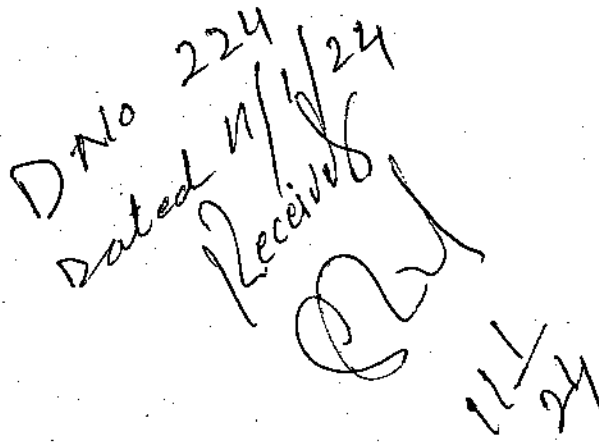 D No 224
Dated 11/1/24
Received
11/1/24